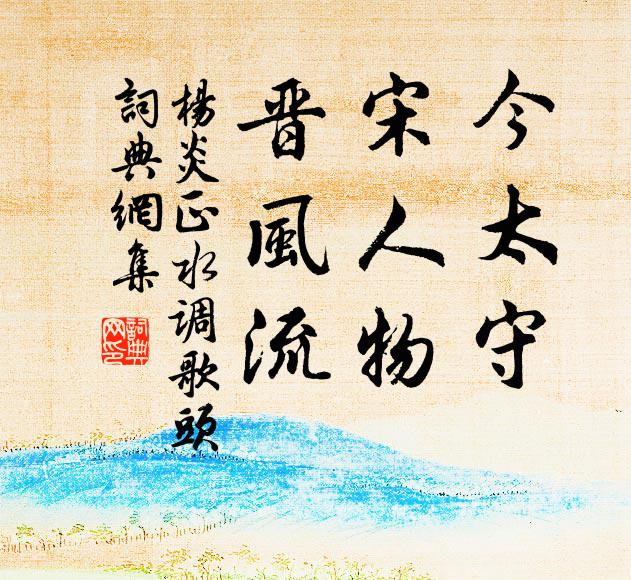 今太守
宋人物
晋風流
楊炎正水调歌頭
詞典網集
詞典
网印